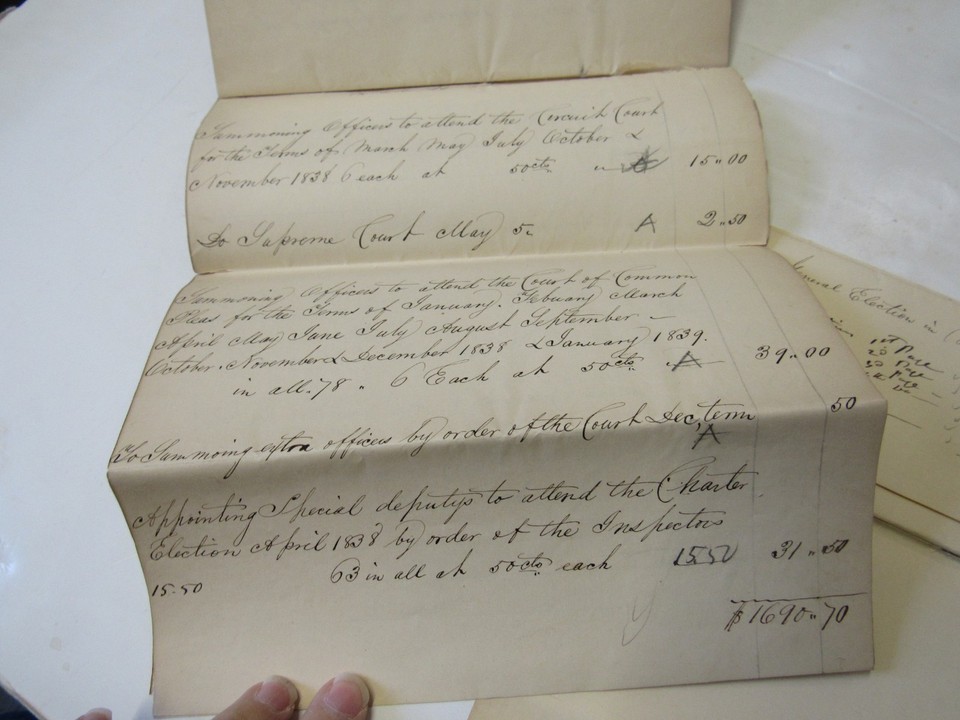 Summoning Officers to attend the Circuit Court
for the Terms of March May July October &
November 1838 6 each at 50cts " A 15"00
Do Supreme Court May 5. A 2"50
Summoning Officers to attend the Court of Common
Pleas for the Terms of January. Febuary March
April May June July August September -
October. November & December 1838 & January 1839.
in all. 78 " 6 Each at 50cts " A 39"00
To Summoing extra officers by order of the Court Dec, term 50
A
Appointing Special deputys to attend the Charter
Election April 1838 by order of the Inspectors
63 in all at 50cts each 15.50 31"50
15.50
$1690"70
General Election in
1st